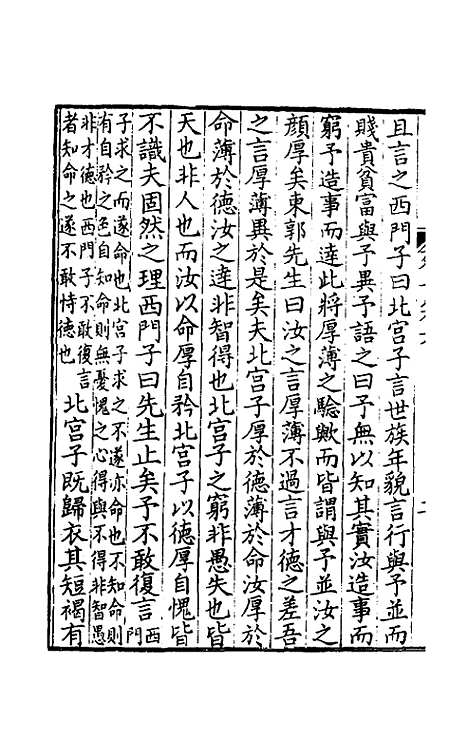 且言之西門子曰北宮子言世族年貌言行與予並而
賤貴貧富與予異予語之曰予無以知其實汝造事而
窮予造事而達此將厚薄之驗歟而皆謂與予並汝之
顔厚矣東郭先生曰汝之言厚薄不過言才德之差吾
之言厚薄異於是矣夫北宮子厚於德薄於命汝厚於
命薄於德汝之達非智得也北宮子之窮非愚失也皆
天也非人也而汝以命厚自矜北宮子以德厚自愧皆
不識夫固然之理西門子曰先生止矣予不敢復言西門
子求之而遂命也北宮子求之不遂亦命也不知命則
有自矜之色自知命則無憂愧之心得與不得非智愚
非才德也西門子不敢復言
者知命之遂不敢恃德也
北宮子既歸衣其短褐有